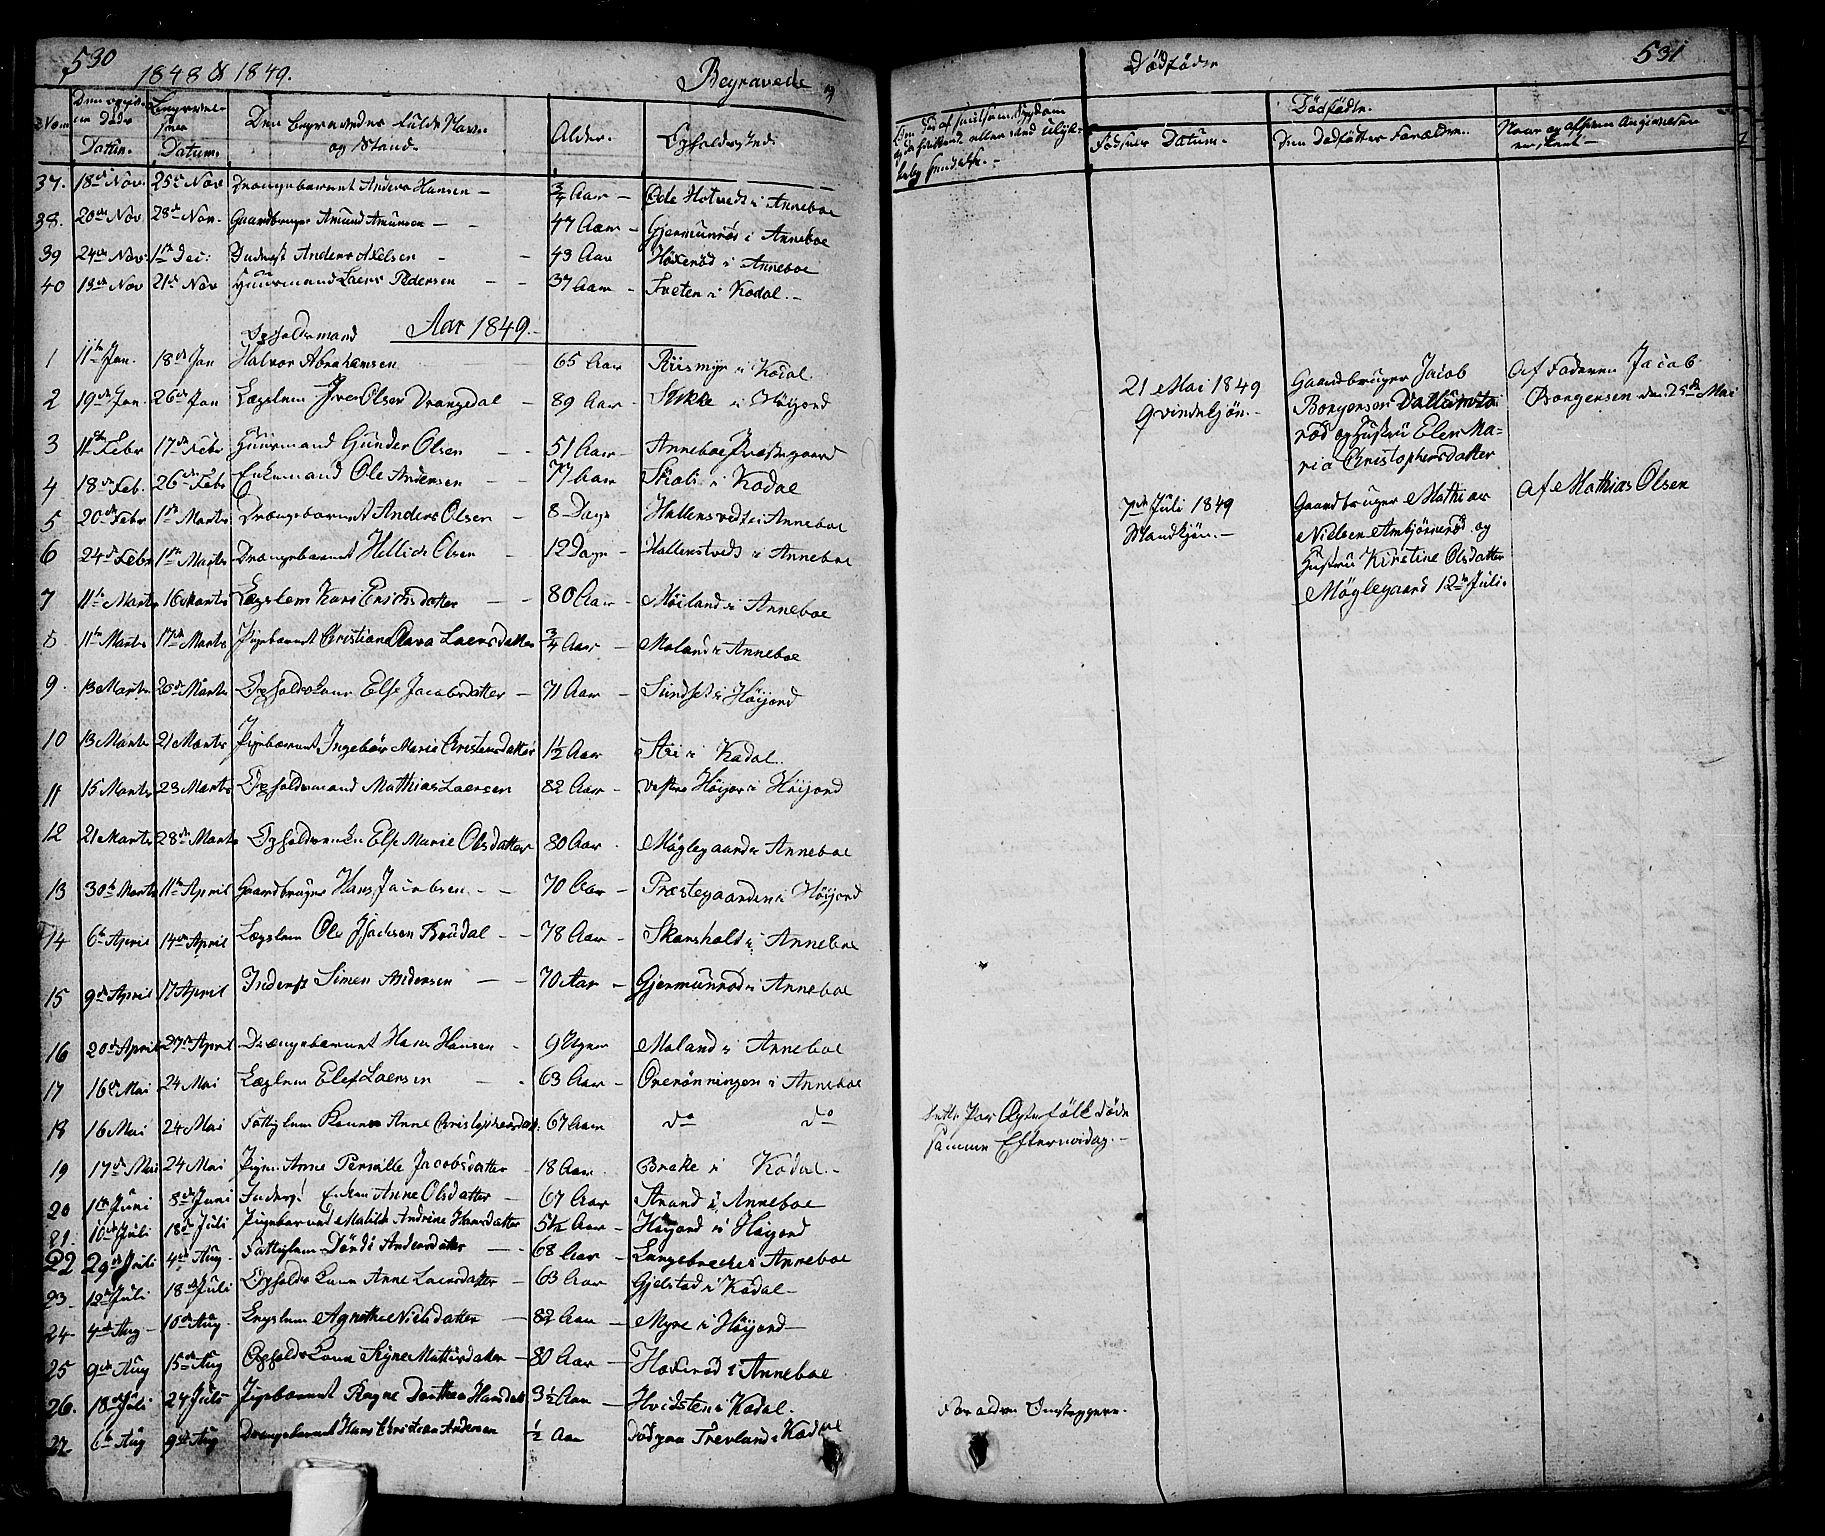 530
1848 & 1849.
Begravede
Num
Datum.
Datum.
Den begravedes fulde Navn
og Stand.
Alder.
Opholdssted.
37. 18de Nov. 25de Nov Drengebarnet Anders Hansen — 3/4 Aar — Øde Hotvedt i Anneboe
38. 20de Nov 28de Nov. Gaardbruger Amund Amunsen — 47 Aar — Gjermunrød i Anneboe
39 24de Nov. 1ste Dec: Inderst Anders Axelsen — 43 Aar Haxerød i Anneboe
40 13de Nov 21de Nov Huusmand Laers Pedersen — 37 Aar — Fveten i Kodal.—
Aar 1849.
Opholdsmand
1 11te Jan. 18de Jan Halvor Abrahamsen 65 Aar Riismyr i Kodal
2 19de Jan. 26de Jan Lægslem Iver Olsen Drangedal — 89 Aar — Stokke i Høijord
3 11te Febr 17de Febr Huusmand Gunder Olsen — 51 Aar — Anneboe Præstegaard
4 18de Feb. 26de Febr Enkemand Ole Andersen — 77 Aar — Skoli i Kodal
5 20de Febr 1ste Marts Drengebarnet Anders Olsen — 8 Dage — Hallenstvedt i Anneboe
6 24de Febr 1ste Marts Drengebarnet Hellick Olsen — 12 Dage — Hallenstvedt i Anneboe
7 11te Marts 16 Marts Lægslem Kari Erichsdatter — 80 Aar — Møiland i Anneboe
8 11te Marts 17de Marts Pigebarnet Christiane Olava Laersdatter 3/4 Aar — Moland i Anneboe
9. 13 Marts 20de Marts Opholdskone Else Jacobsdatter — 71 Aar — Sundset i Høijord
10 13 Marts 21 Marts Pigebarnet Ingebør Marie Christensdatter 1½ Aar Stei i Kodal.
11 15 Marts 23 Marts Opholdsmand Mathias Laersen 82 Aar — Vestre Høijor i Høijord
12 21 Marts 28de Marts Opholdsenke Else Marie Olsdatter 80 Aar Møglegaard i Anneboe
13 30te Marts 11te April Gaardbruger Hans Jacobsen — 70 Aar — Præstegaarden i Høijord
14 6te April 14de April Lægslem Ole Isachsen Brudal — 78 Aar — Skarsholt i Anneboe
15 9de April 17 April Inderst Simen Andersen — 70 Aar — Gjermunrød i Anneboe
16 20de April 27de April Drengebarnet Hans Hansen — 9 Uger Moland i Anneboe
17 16de Mai 24 Mai Læglem Elef Laersen — 63 Aar — Overønningen i Anneboe
18 16 Mai 24 Mai Fattiglem Konen Anne Christophersdatt: 67 Aar do do
19 17de Mai 24 Mai Pigen Anne Pernille Jacobsdatter — 18 Aar. Brekke i Kodal.—
20 1ste Juni 8de Juni Enken Anne Olsdatter — 67 Aar Strand i Anneboe
21. 10de Juli 18de Juli Pigebarnet Matilde Andrine Hansdatter 5½ Aar — Høijord i Høijord
22 29de Juli 4de Aug. Fattiglem Dorthe Andersdatter — 68 Aar — Langebrekke i Anneboe
23. 12te Juli 18de Juli Opholds Kone Anne Laersdatter — 63 Aar Gjelstad i Kodal —
24 4de Aug — 10de Aug. Lægslem Agnethe Nielsdatter — 82 Aar — Myre i Høijord —
25 9de Aug 15de Aug Opholds Kone Signe Mattisdatter — 80 Aar — Haxerød i Anneboe
26. 18de Juli 24 Juli Pigebarnet Ragne Dorthea Hansdatt 3½ Aar — Hvidsten i Kodal.
27 6te Aug 9de Aug Drengebarnet Hans Christian Andersen ½ Aar Trevland i Kodal
531
Dødfødte
Dødfødte.
Fødsels Datum.
Den Dødfødtes Forældre.
Naar og af hvem Angivelsen
er skeet —
21 Mai 1849
Qvindekjøn. —
Gaardbruger Jacob
Borgersen Vallumsrød
og Hustru Elen Maria
Christophersdatter
Af Faderen Jacob
Borgersen den 25de Mai
7de Juli 1849
Mandkjøn. —
Gaardbruger Mathias
Nielsen Amhjørnerød og
Hustru Kirstine Olsdatter
Møglegaard 12te Juli.
af Mathias Olsen
Dette Par Ægtefolk døde
samme Eftermidag. —
Forældre Omstreifere.